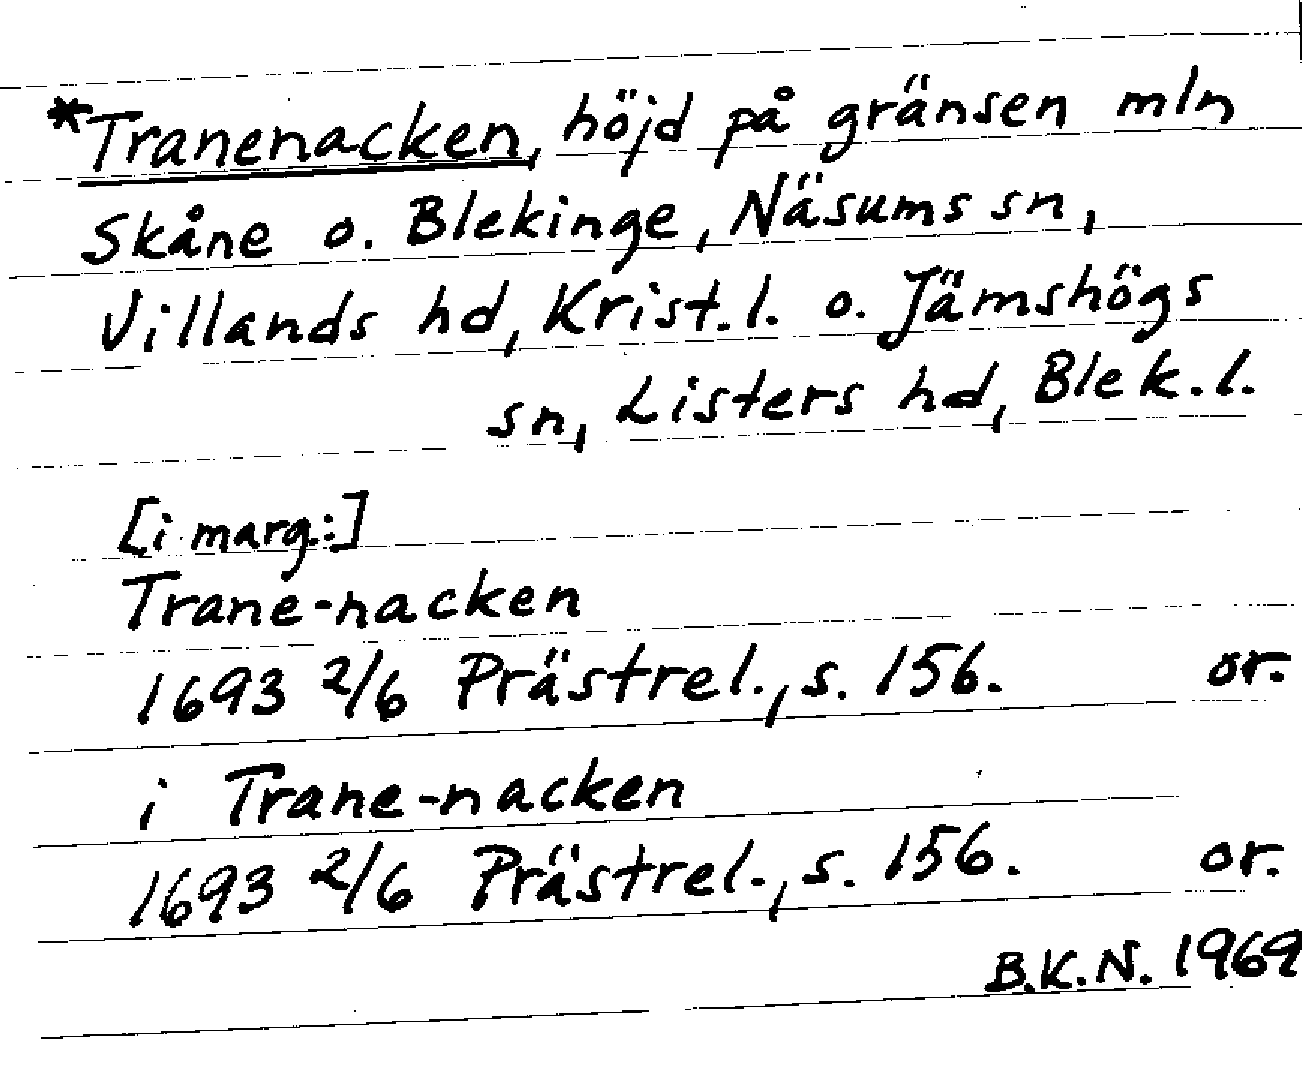 *Tranenacken, höjd på gränsen mln
Skåne o. Blekinge, Näsums sn,
Villands hd, Krist.l. o. Jämshögs
sn, Listers hd, Blek.l.
[i marg.:]
Trane-nacken
1693 2/6 Prästrel., s. 156. or.
i Trane-nacken
1693 2/6 Prästrel., s. 156. or.
B.K.N. 1969